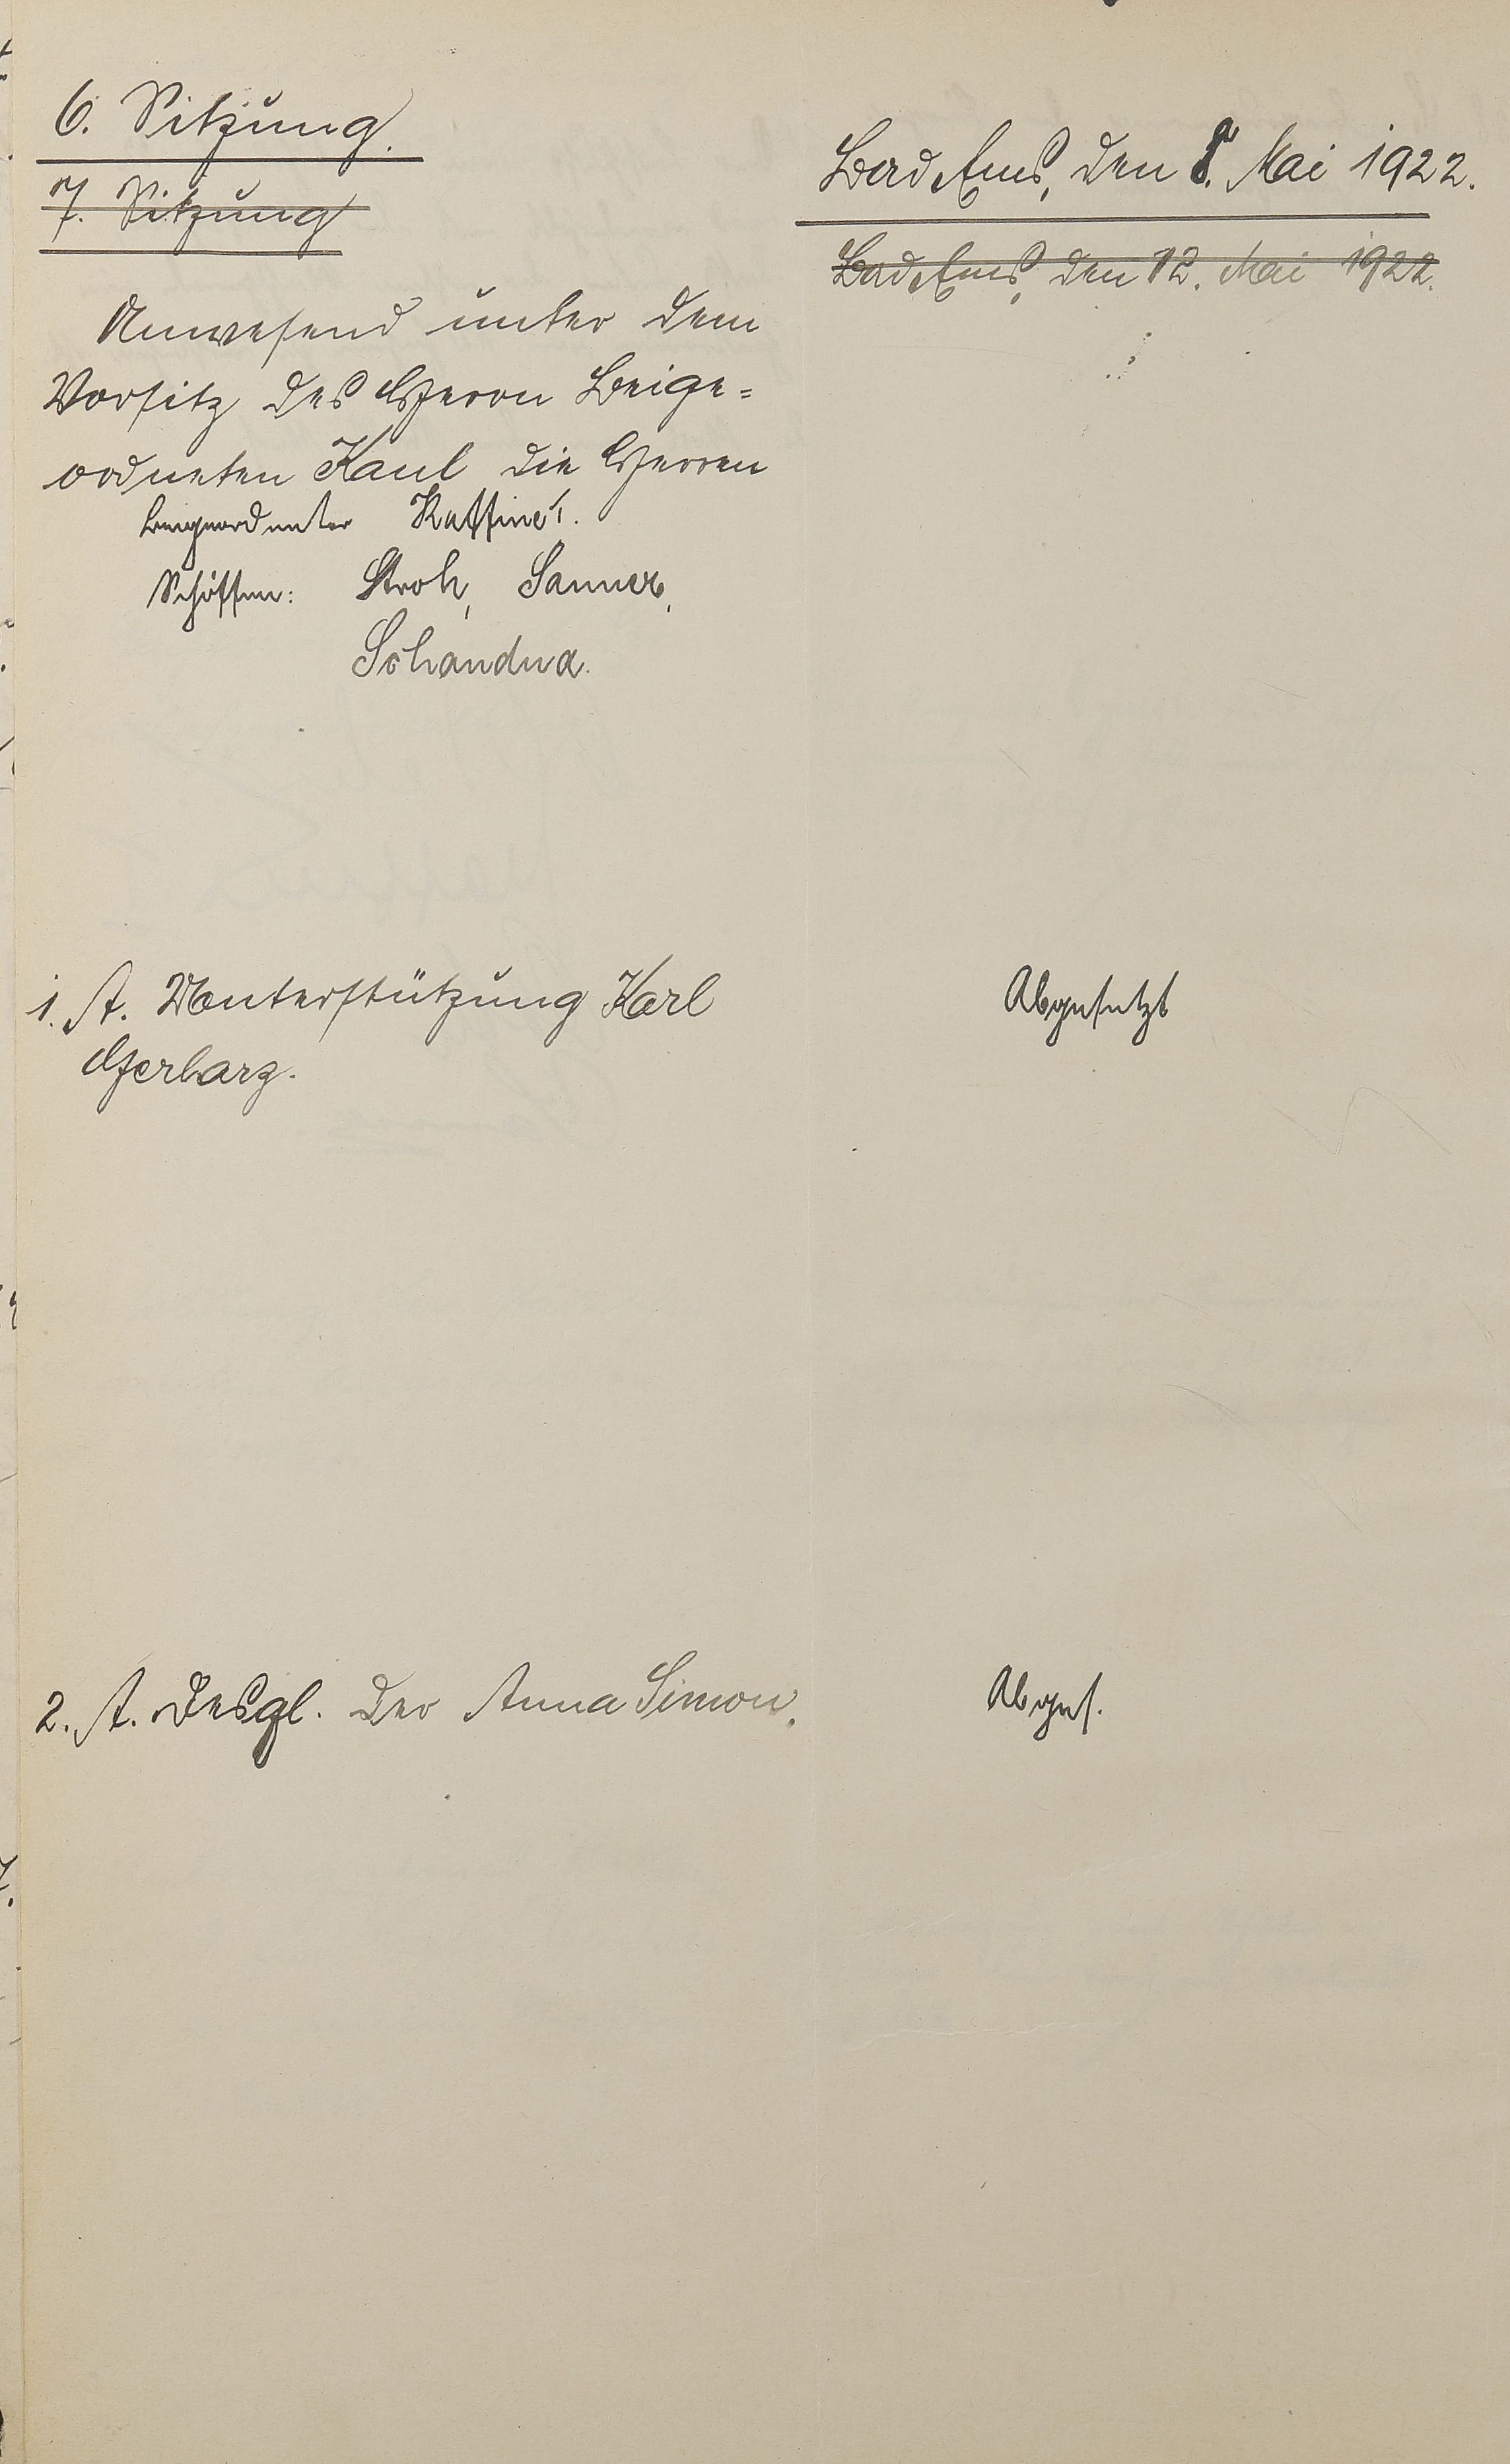 6. Sitzung.
7. Sitzung
Bad Ems, den 8. Mai 1922.
Bad Ems, den 12. Mai 1922.
Anwesend unter dem
Vorsitz des Herrn Beige=
ordneten Kaul die Herren
Beigeordneter Kaffiné.
Schöffen: Stroh, Sanner,
Schandua.
1. A. Unterstützung Karl
Abgesetzt
2. A. Desgl. der Anna Simon.
Abges.